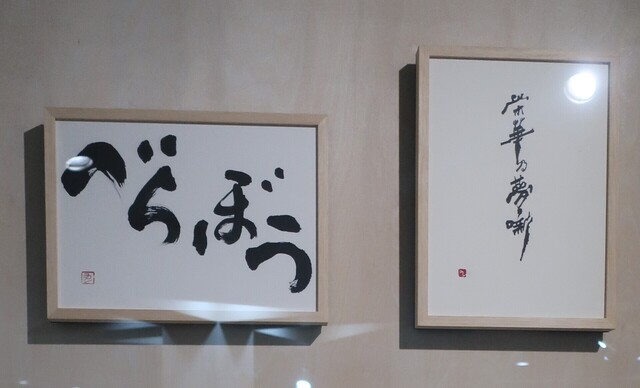 べらぼう
栄華乃夢噺